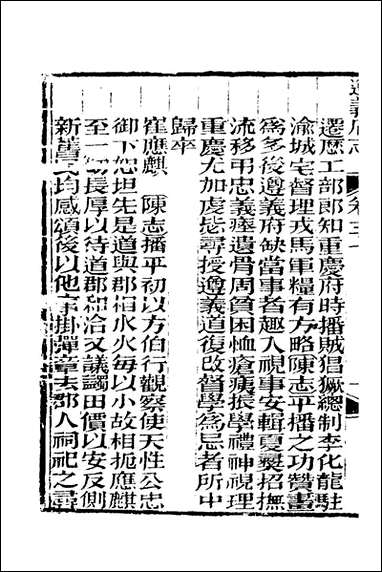 遵義府志
遷歷工部郎知重慶府時播賊猖獗總制李化龍駐
渝城宅督理戎馬軍糧有方略陳志平播之功贊畫
為多後遵義府缺當事者趣人視事安輯夏爕招撫
流移弔忠義瘞遺骨周貧困恤瘡痍振學禮神視理
重慶尤加虔毖尋授遵義道復改督學為忌者所中
歸卒
寇應麒 陳志播平初以方伯行觀察使天性公忠
御下恕坦先是道與郡相水火每以小故相扼應麒
至一切長厚以待道郡和洽文議蠲田價以安反側
新舊民均感頌後以他掛彈章去郡人祠祀之尋